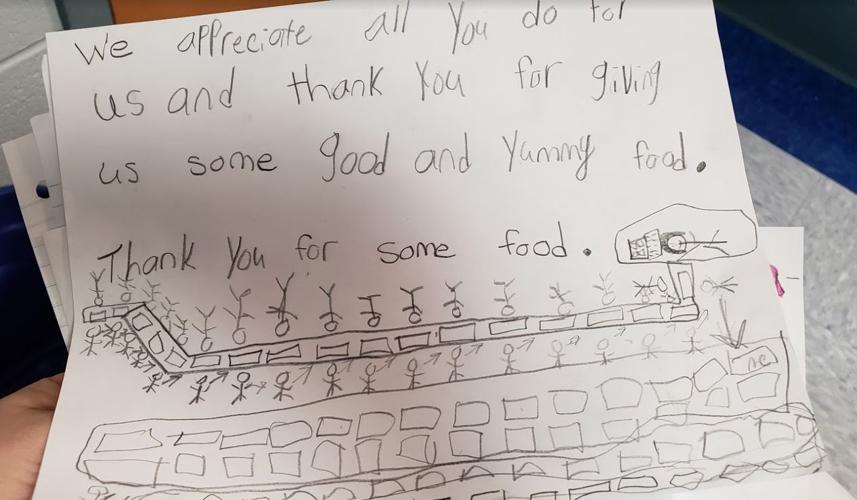 We appreciate all You do for
us and thank You for giving
us some good and Yummy food.
Thank You for some food.
me